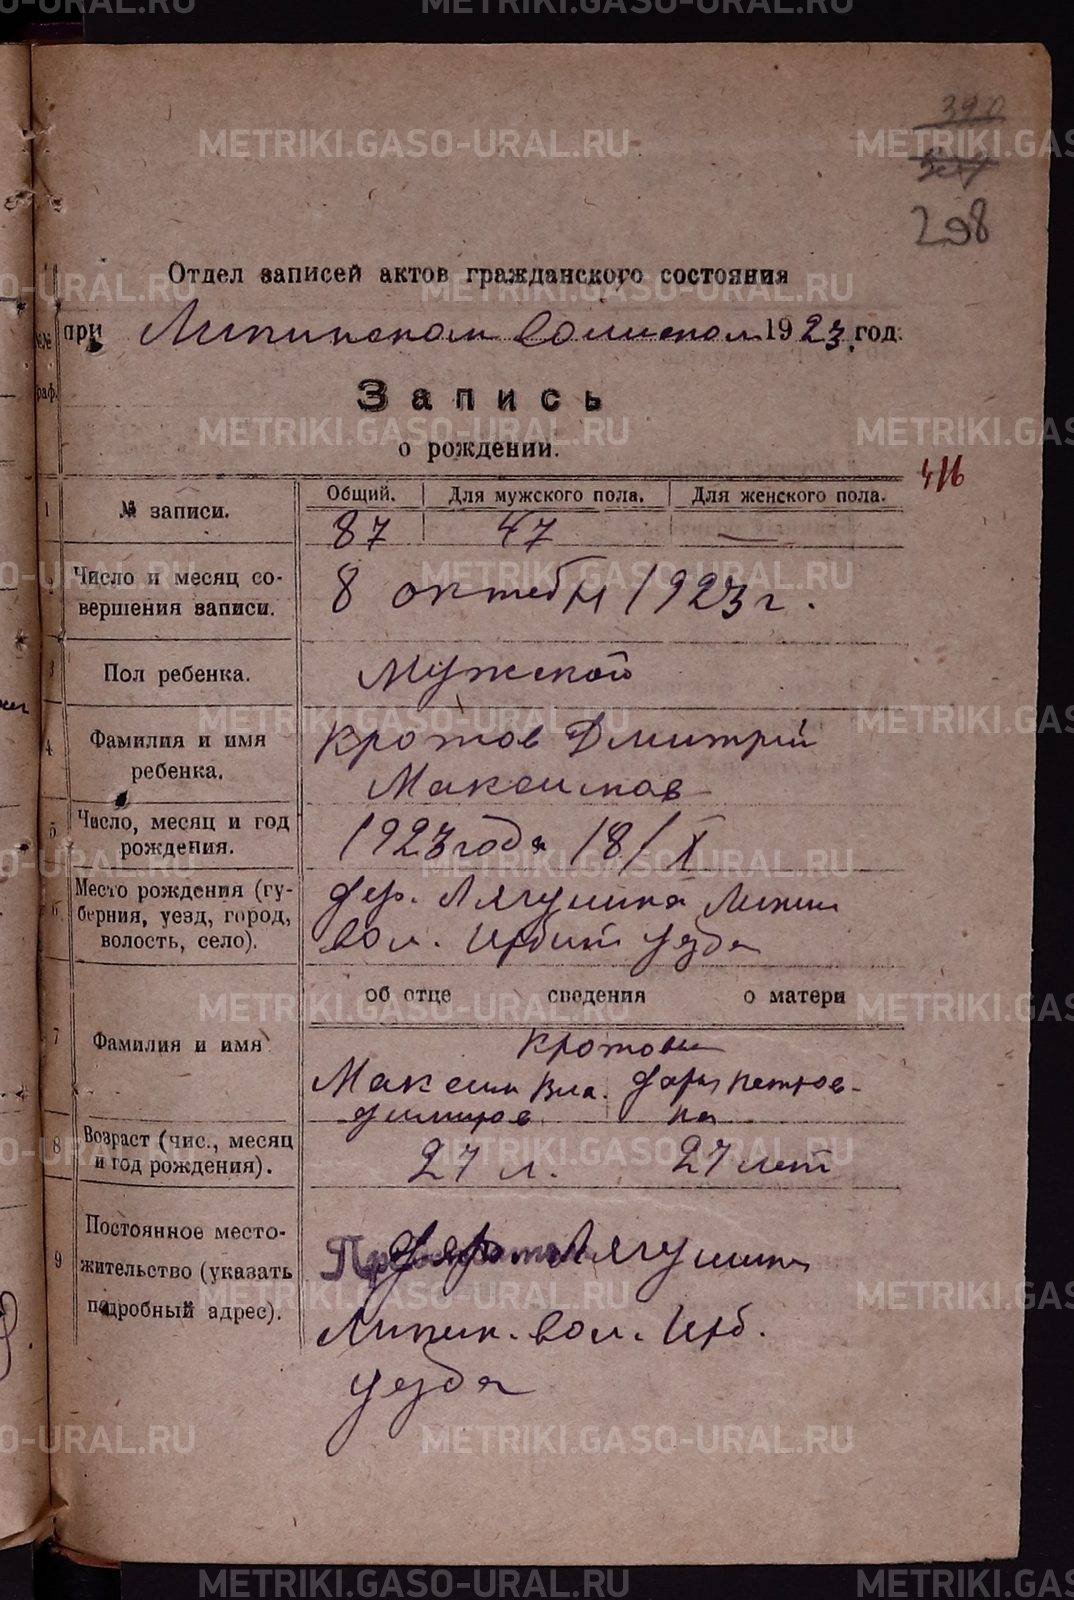 298
Отдел записей актов гражданского состояния
при Липинском волисполк. 1923 год.
№№ граф.
Запись
о рождении.
416
1 № записи. Общий. Для мужского пола. Для женского пола.
87 47 —
2 Число и месяц совершения записи. 8 октебря 1923 г.
3 Пол ребенка. Мужской
4 Фамилия и имя ребенка. Кротов Дмитрий
Максимов
5 Число, месяц и год рождения. 1923 года 18/X
6 Место рождения (губерния, уезд, город, волость, село). дер. Лягушина Липин
вол. Ирбит уезда
об отце сведения о матери
7 Фамилия и имя Кротовы
Максим Вла- Дарья Петров-
димиров на
8 Возраст (чис., месяц и год рождения). 27 л. 27 лет
9 Постоянное местожительство (указать подробный адрес). дер. Лягушина
Липин. вол. Ирб.
уезда
METRIKI.GASO-URAL.RU